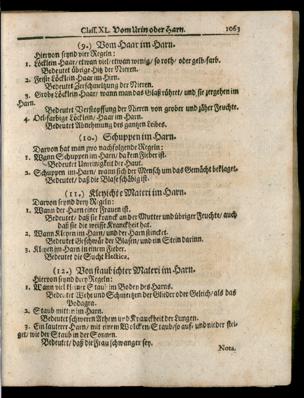 Classs. XL. Vom Urin oder Harn. 1063
(9.) Vom Haar im Harn.
Hiervon seynd vier Regeln:
1. Löcklein Haar / etwan viel / etwan wenig / so roth- oder gelb-farb.
Bedeutet übrige Hitz der Nieren.
2. Feiste Löcklein Haar im Harn.
Bedeutet Zerschmeltzung der Nieren.
3. Grobe Löcklein Haar / wann man das Glaß rühret / und sie zergehen im
Harn.
Bedeutet Verstopffung der Nieren von grober und zäher Feuchte.
4. Och-farbige Löcklein / Haar im Harn.
Bedeutet Abnehmung des gantzen Leibes.
(10.) Schuppen im Harn.
Darvon hat man zwo nachfolgende Regeln:
1. Wann Schuppen im Harn / da kein Fieber ist.
Bedeutet Unreinigkeit der Haut.
2. Schuppen im Harn / wann sich der Mensch um das Gemächt beklaget.
Bedeutet / daß die Blase schäbig ist.
(11.) Kleyichte Materi im Harn.
Darvon seynd drey Regeln:
1. Wann der Harn einer Frauen ist.
Bedeutet / daß sie kranck an der Mutter und übriger Feuchte / auch
daß sie die weisse Kranckheit hat.
2. Wann Kleyen im Harn / und der Harn stincket.
Bedeutet Geschwär der Blasen / und ein Stein darinn.
3. Kleyen im Harn in einem Fieber.
Bedeutet die Sucht Hectica.
(12.) Von staubichter Materi im Harn.
Hiervon seynd drey Regeln:
1. Wann viel kleine Staub im Boden des Harns.
Bedeutet Wehe und Schmertzen der Glieder oder Geleich / als das
Podagra.
2. Staub mitten im Harn.
Bedeutet schweren Athem und Kranckheit der Lungen.
3. Ein lauterer Harn / mit einem Wolcken Staub / so auf- und nieder steiget /
wie der Staub in der Sonnen.
Bedeutet / daß die Frau schwanger sey.
Nota.